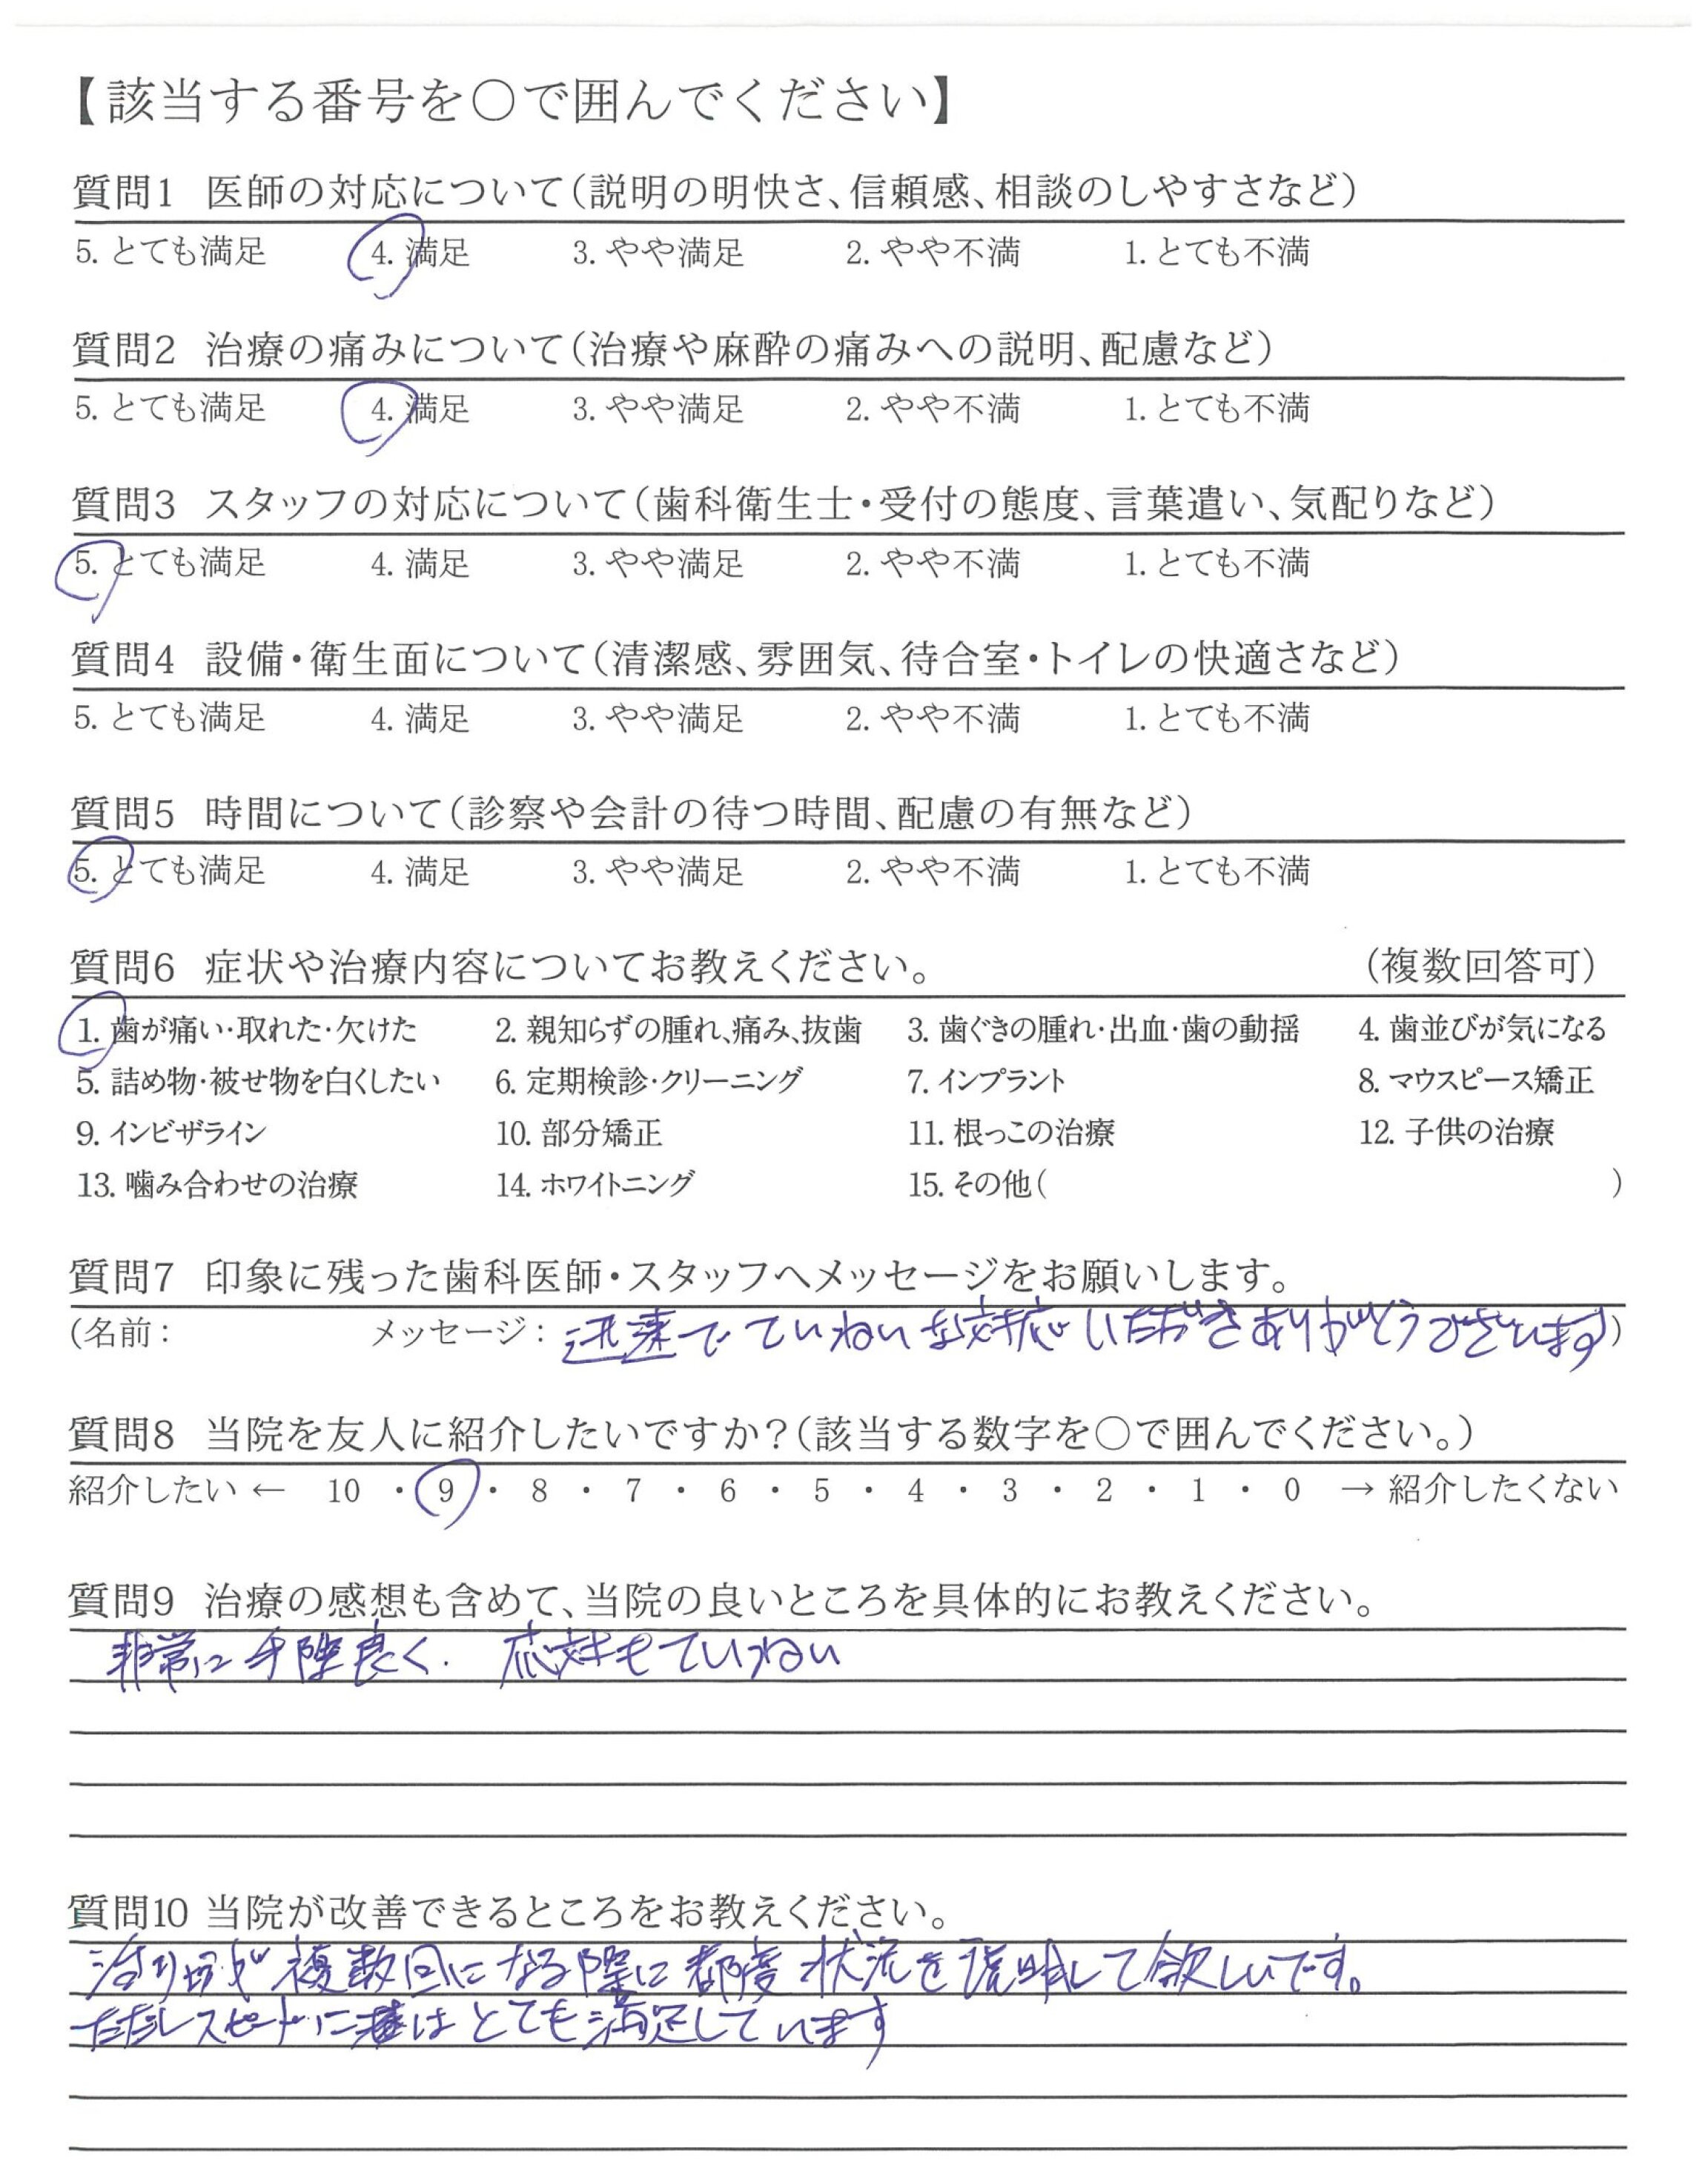 【該当する番号を○で囲んでください】
質問1 医師の対応について(説明の明快さ、信頼感、相談のしやすさなど)
5. とても満足 4. 満足 3. やや満足 2. やや不満 1. とても不満
質問2 治療の痛みについて(治療や麻酔の痛みへの説明、配慮など)
5. とても満足 4. 満足 3. やや満足 2. やや不満 1. とても不満
質問3 スタッフの対応について(歯科衛生士・受付の態度、言葉遣い、気配りなど)
5. とても満足 4. 満足 3. やや満足 2. やや不満 1. とても不満
質問4 設備・衛生面について(清潔感、雰囲気、待合室・トイレの快適さなど)
5. とても満足 4. 満足 3. やや満足 2. やや不満 1. とても不満
質問5 時間について(診察や会計の待つ時間、配慮の有無など)
5. とても満足 4. 満足 3. やや満足 2. やや不満 1. とても不満
質問6 症状や治療内容についてお教えください。 (複数回答可)
1. 歯が痛い・取れた・欠けた 2. 親知らずの腫れ、痛み、抜歯 3. 歯ぐきの腫れ・出血・歯の動揺 4. 歯並びが気になる
5. 詰め物・被せ物を白くしたい 6. 定期検診・クリーニング 7. インプラント 8. マウスピース矯正
9. インビザライン 10. 部分矯正 11. 根っこの治療 12. 子供の治療
13. 噛み合わせの治療 14. ホワイトニング 15. その他( )
質問7 印象に残った歯科医師・スタッフへメッセージをお願いします。
(名前: メッセージ: 迅速で ていねいな対応 いただき ありがとうございます)
質問8 当院を友人に紹介したいですか?(該当する数字を○で囲んでください。)
紹介したい ← 10 ・ 9 ・ 8 ・ 7 ・ 6 ・ 5 ・ 4 ・ 3 ・ 2 ・ 1 ・ 0 → 紹介したくない
質問9 治療の感想も含めて、当院の良いところを具体的にお教えください。
非常に手際良く. 応対もていねい
質問10 当院が改善できるところをお教えください。
が複数回になる際に都度状況を説明して欲しいです。
ただしスピードに はとても満足しています